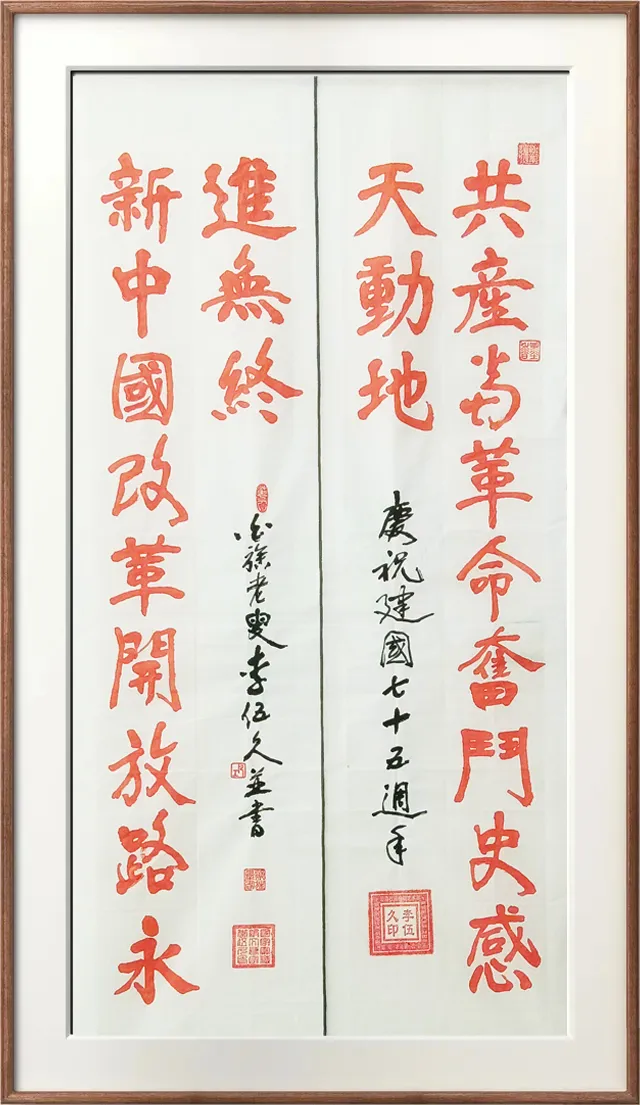 共產党革命奮鬥史感
天動地
慶祝建國七十五週年
李伍
久印
新中國改革開放路永
進無終
徐老叟李伍久並書